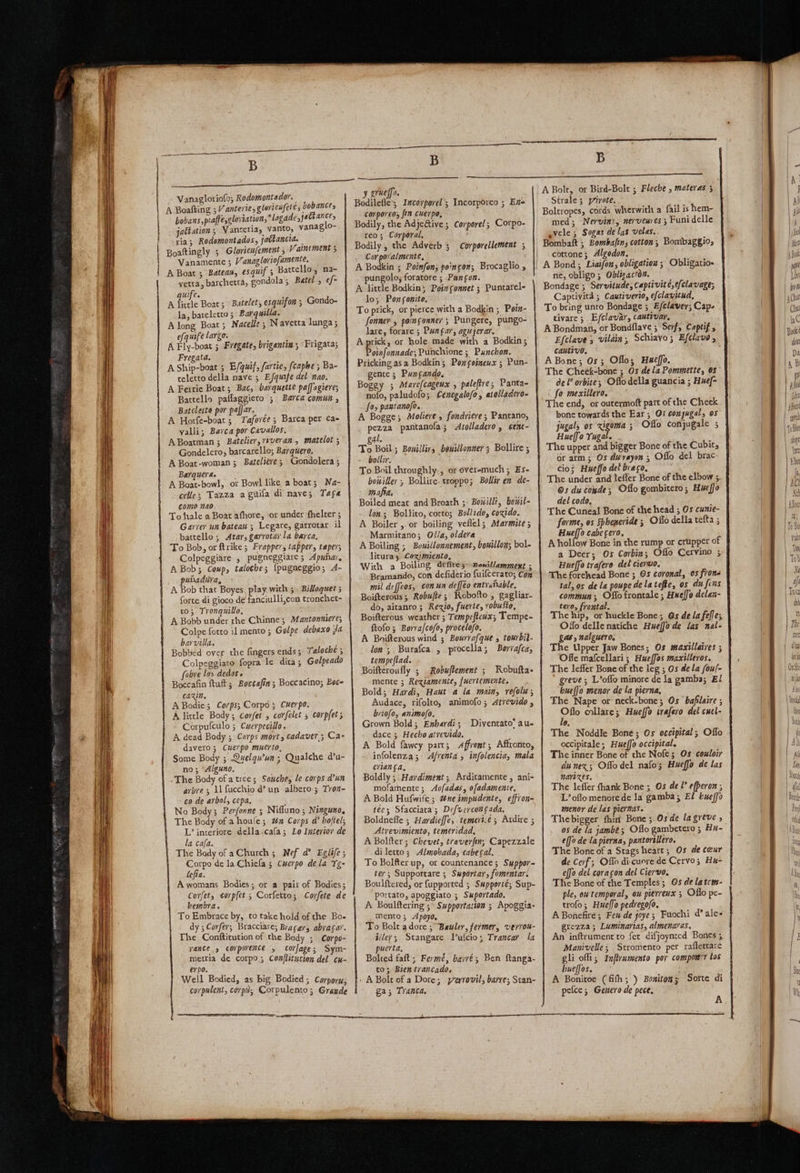 B
Vanagloriofo; Rodomontador.
A Boafting ; Vanterie, gloricufeté, bobance,
jactation ; Vanteria, vanto, vanaglo-
ria ; Rodomontados, jactancia.
Boaftingly ; Glorieufement ; Vainement ;
Vanamente ; Vanagloriofamente.
A Boat ; Bateau, esquif ; Battello, na-
vetta, barchetta, gondola ; Batel, ef-
quife.
A little Boat ; Batelet, esquifon ; Gondo-
la, bateletto ; Barquilla.
A long Boat ; Nacelle ; Navetta lunga ;
efquife largo.
A Fly-boat ; Fregate, brigantin ; Frigata;
Fregata.
A Ship-boat ; Efquif, fartie, fcaphe ; Ba-
teletto della nave ; Efquife del nao.
A Ferrie Boat ; Bac, barquette paffagiere;
Battello paffaggiero ; Barca comun,
Batelesto por paffar.
A Horfe-boat ; Taforée ; Barca per ca-
valli ; Barca por Cavallos.
A Boatman ; Batelier, riveran, matelot ;
Gondelero, barcarello; Barquero.
A Boat-woman ; Bateliere ; Gondolera ;
Barquera.
A Boat-bowl, or Bowl like a boat ; Na-
celle ; Tazza a guifa di nave ; Tafa
como nao
To hale a Boat afhore, or under fhelter ;
Garrer un bateau ; Legare, garrotar il
battello ; Atar, garrotar la barca.
To Bob, or ftrike ; Frapper, tapper, taper;
Colpeggiare, pugneggiare ; Apuñar,
A Bob ; Coup, taloche ; fpugneggio ; A-
puñadura,
A Bob that Boyes play with ; Billoquet ;
forte di gioco de fanciulli, con tronchet-
to ; Tronquillo,
A Bobb under the Chinne ; Mantonniere;
Colpe fotto il mento ; Golpe debaxo la
barvilla.
Bobbed over the fingers ends ; Taloché ;
Colpeggiato fopra le dita ; Golpeado
fobre los dedos.
Boccafin ftuff ; Boccafin ; Boccacino; Boc-
cazin.
A Bodie ; Corps ; Corpo ; Cuerpo.
A little Body ; corfet, corfelet, corpfet ;
Corpufculo ; Cuerpecillo.
A dead Body ; Corps mort, cadaver ; Ca-
davero ; Cuerpo muerto,
Some Body ; Quelqu'un ; Qualche d'u-
no ; Alguno.
The Body of a tree ; Souche, le corps d'un
arbre ; Il fucchio d'un albero ; Tron-
co de arbol, cepa.
No Body ; Perfonne ; Niffuno ; Ninguno.
The Body of a houfe ; Un Corps d' hoftel;
L'interiore della cafa ; Lo Interior de
la cafa.
The Body of a Church ; Nef d' Eglife ;
Corpo de la Chiefa ; Cuerpo de la Yg-
lefia.
A womans Bodies ; or a pair of Bodies ;
Corfet, corpfet ; Corfetto ; Corfete de
hembra.
To Embrace by, to take hold of the Bo-
dy ; Corfer ; Bracciare ; Braçar, abraçar.
The Conftitution of the Body ; Corpo-
rance, corpurence, corfage ; Sym-
metria de corpo ; Conftitution del cu-
erpo.
Well Bodied, as big Bodied ; Corporu,
corpulent, corpu ; Corpulento ; Grande
B
y grueffo.
Bodileffe ; Incorporel ; Incorporeo ; En-
corporeo, fin cuerpo,
Bodily, the Adjective ; Corporel ; Corpo-
reo ; Corporal.
Bodily, the Adverb ; Corporellement ;
Corporalmente,
A Bodkin ; Poinfon, poinçon ; Brocaglio,
pungolo, foratore ; Punçon.
A little Bodkin ; Poinçonnet ; Puntarel-
lo ; Ponçonito.
To prick, or pierce with a Bodkin ; Poin-
fonner, poinçonner ; Pungere, pungo-
lare, forare ; Punçar, agujerar.
A prick, or hole made with a Bodkin ;
Poinfonnade; Punchione ; Punchon.
Pricking as a Bodkin ; Ponçoineux ; Pun-
gente ; Punçando.
Boggy ; Marefcageux, paleftre ; Panta-
nofo, paludofo ; Cenegalofo, atolladero-
fo, pantanofo.
A Bogge ; Moliere, fondriere ; Pantano,
pezza pantanofa ; Atolladero, cene-
gal.
To Boil ; Bouillir, bouillonner ; Bollire ;
bollir.
To Boil throughly, or over-much ; Es-
boüiller ; Bollire troppo ; Bollir en de-
mafia,
Boiled meat and Broath ; Boüilli, boüil-
lon ; Bollito, corto ; Bollido, coxido.
A Boiler, or boiling veffel ; Marmite ;
Marmitano ; Olla, oldera
A Boiling ; Bouillonnement, bouillon ; bol-
litura ; Coximiento.
With a Boiling defire ; Bouillamment ;
Bramando, con defiderio fuifcerato ; Con
mil deffeos, con un deffeo entrañable.
Boifterous ; Robufte ; Robofto, gagliar-
do, aitanro ; Rezio, fuerte, robufto,
Boifterous weather ; Tempefteux ; Tempe-
ftofo ; Borrafcofo, procelofo.
A Boifterous wind ; Bourrafque, tourbil-
lon ; Burafca, procella ; Borrafca,
tempeftad.
Boifteroufly ; Robuftement ; Robufta-
mente ; Reziamente, fuertemente.
Bold ; Hardi, Haut a la main, refolu ;
Audace, rifolto, animofo ; Atrevido,
briofo, animofo.
Grown Bold ; Enhardi ; Diventato au-
dace ; Hecho atrevido.
A Bold fawcy part ; Affront ; Affronto,
infolenza ; Afrenta, infolencia, mala
criança.
Boldly ; Hardiment ; Arditamente, ani-
mofamente ; Atofadas, ofadamente.
A Bold Hufwife ; Une impudente, effron-
tée ; Sfacciata ; Defvergonçada.
Boldneffe ; Hardieffe, temerité ; Ardire ;
Atrevimiento, temeridad,
A Bolfter ; Chevet, traverfin ; Capezzale
di letto ; Almohada, cabeçal.
To Bolfter up, or countenance ; Suppor-
ter ; Supportare ; Suportar, fomentar.
Boulftered, or fupported ; Supporté ; Sup-
portato, appoggiato ; Suportado.
A Boulftering ; Supportation ; Apoggia-
mento ; Apoyo,
To Bolt a dore ; Bauler, fermer, verrou-
iller ; Stangare l'ufcio ; Trancar la
puerta.
Bolted faft ; Fermé, barré ; Ben ftanga-
to ; Bien trancado,
A Bolt of a Dore ; Verrouil, barre ; Stan-
ga ; Tranca.
B
A Bolt, or Bird-Bolt ; Fleche, materas ;
Strale ; Virote.
Boltropes, cords wherwith a fail is hem-
med ; Nervins, nerveures ; Funi delle
vele ; Sogas de las velas.
Bombaft ; Bombafin, cotton ; Bombaggio,
cottone ; Algodon.
A Bond ; Liaifon, obligation ; Obligatio-
ne, obligo ; Obligacion.
Bondage ; Servitude, captivité, efclavage;
Captività ; Cautiverio, efclavitud,
To bring unto Bondage ; Efclaver ; Cap-
tivare ; Efclavar, cautivar,
A Bondman, or Bondflave ; Serf, Captif,
Efclave ; villain ; Schiavo ; Efclavo,
cautivo.
A Bone ; Os ; Offo ; Hueffo.
The Cheek-bone ; Os de la Pommette, os
de l' orbite ; Offo della guancia ; Huef-
fo mexillero.
The end, or outermoft part of the Cheek
bone towards the Ear ; Os conjugal, os
jugal, os zigoma ; Offo conjugale ;
Hueffo Yugal.
The upper and bigger Bone of the Cubit,
or arm ; Os du rayon ; Offo del brac-
cio ; Hueffo del braço.
The under and leffer Bone of the elbow ;
Os du coude ; Offo gombitero ; Hueffo
del codo,
The Cuneal Bone of the head ; Os cunie-
forme, os fpheneride ; Offo della tefta ;
Hueffo cabeçero,
A hollow Bone in the rump or crupper of
a Deer ; Os Corbin ; Offo Cervino ;
Hueffo trafero del ciervo.
The forehead Bone ; Os coronal, os fron-
tal, os de la poupe de la tefte, os du fens
commun ; Offo frontale ; Hueffo delan-
tero, frontal.
The hip, or huckle Bone ; Os de la feffe;
Offo delle natiche Hueffo de las nal-
gas, nalguero.
The Upper Jaw Bones ; Os maxillaires ;
Offe mafcellari ; Hueffos maxilleros.
The leffer Bone of the leg ; Os de la fouf-
greve ; L'offo minore de la gamba ; El
hueffo menor de la pierna,
The Nape or neck-bone ; Os bafilaire ;
Offo collare ; Hueffo trafero del cuel-
lo.
The Noddle Bone ; Os occipital ; Offo
occipitale ; Hueffo occipital.
The inner Bone of the Nofe ; Os couloir
du nez ; Offo del nafo ; Hueffo de las
narizes.
The leffer fhank Bone ; Os de l' efperon ;
L'offo menore de la gamba ; El hueffo
menor de las piernas.
The bigger fhin Bone ; Os de la greve,
os de la jambe ; Offo gambetero ; Hu-
effo de la pierna, pantorillero.
The Bone of a Stags heart ; Os de cœur
de Cerf ; Offo di cuore de Cervo ; Hu-
effo del coraçon del Ciervo.
The Bone of the Temples ; Os de la tem-
ple, ou temporal, ou pierreux ; Offo pe-
trofo ; Hueffo pedregofo.
A Bonefire ; Feu de joye ; Fuochi d'ale-
grezza ; Luminarias, almenaras.
An inftrument to fet disjoynted Bones ;
Manivelle ; Stromento per raffettare
gli offi ; Inftrumento por componer los
hueffos.
A Bonitoe (fifh ; ) Boniton ; Sorte di
pefce ; Genero de pece.
A